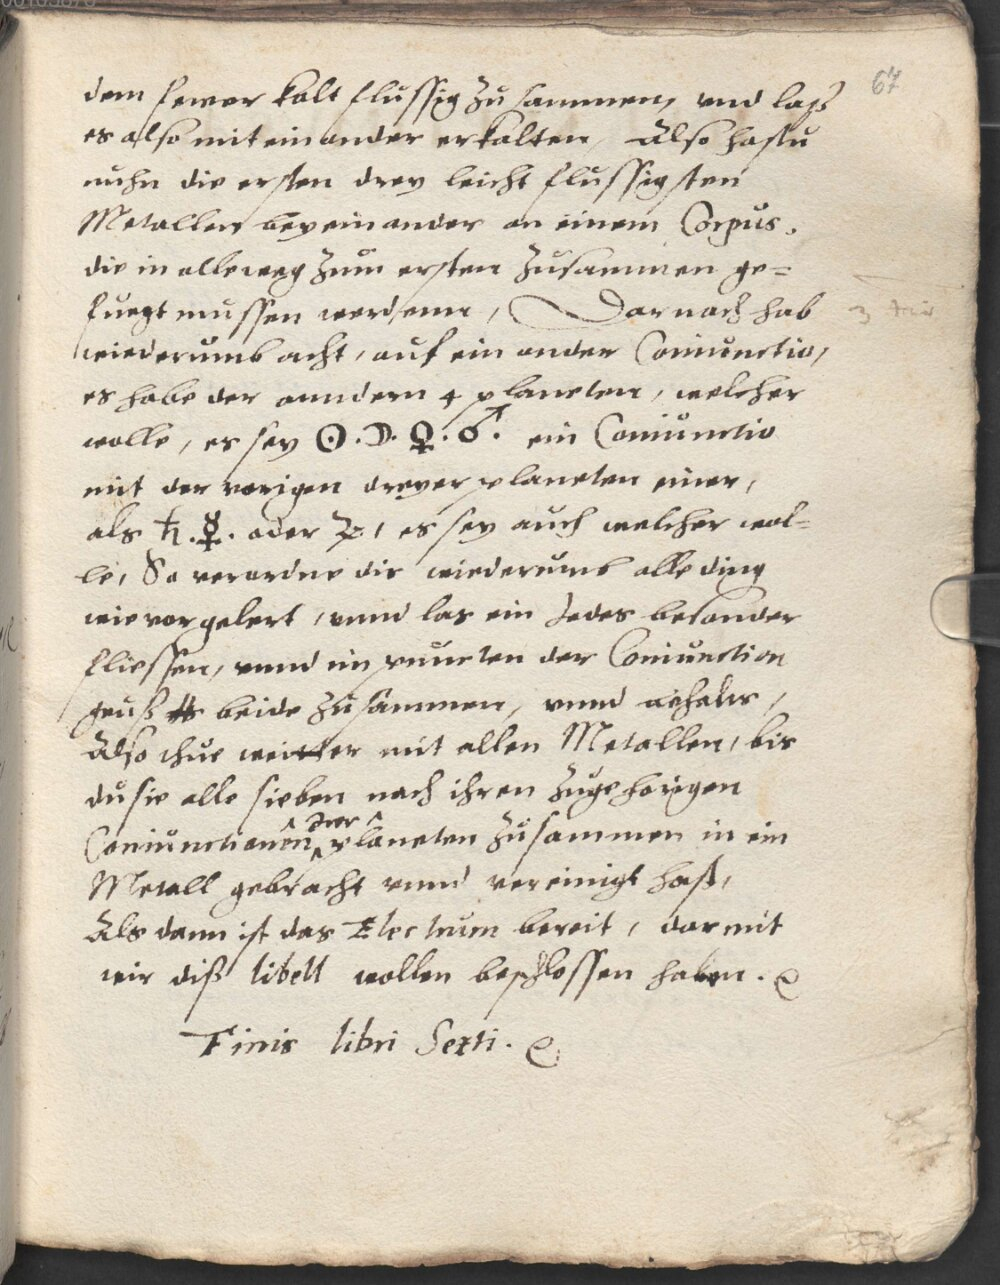 67
dem fewer kalt flussig zu sammen, vnd laß
es also mit einander erkalten, Also hastu
nuhn die ersten drey leicht flussigsten
Metallen bey einander an einem Corpus.
die in alleweg zum ersten zusammen ge=
fuegt mussen werdenn, Dar nach hab
wiederumb acht, auf ein ander Coniunctio,
es habe der anndern 4 planeten, welcher
wolle, es sey ☉. ☽. ♀. ♂. ein Coniunctio
mit der vorigen dreyer planeten einer,
als ♄. ☿. oder ♃, es sey auch welcher wol=
le, So verordne dir wiederumb alle ding
wie vor gelert, vnnd las ein Jedes besonder
fliessen, vnnd im puncten der Coniunction
geuß beide zusammen, vnnd behalts,
Also thue weitter mit allen Metallen, bis
du sie alle sieben nach ihren zugehorigen
Coniunctionen der planeten zusammen in ein
Metall gebracht vnnd vereinigt hast,
Als dann ist das Electrum bereit, dar mit
wir diß libell wollen beschlossen haben.
Finis libri Sexti.